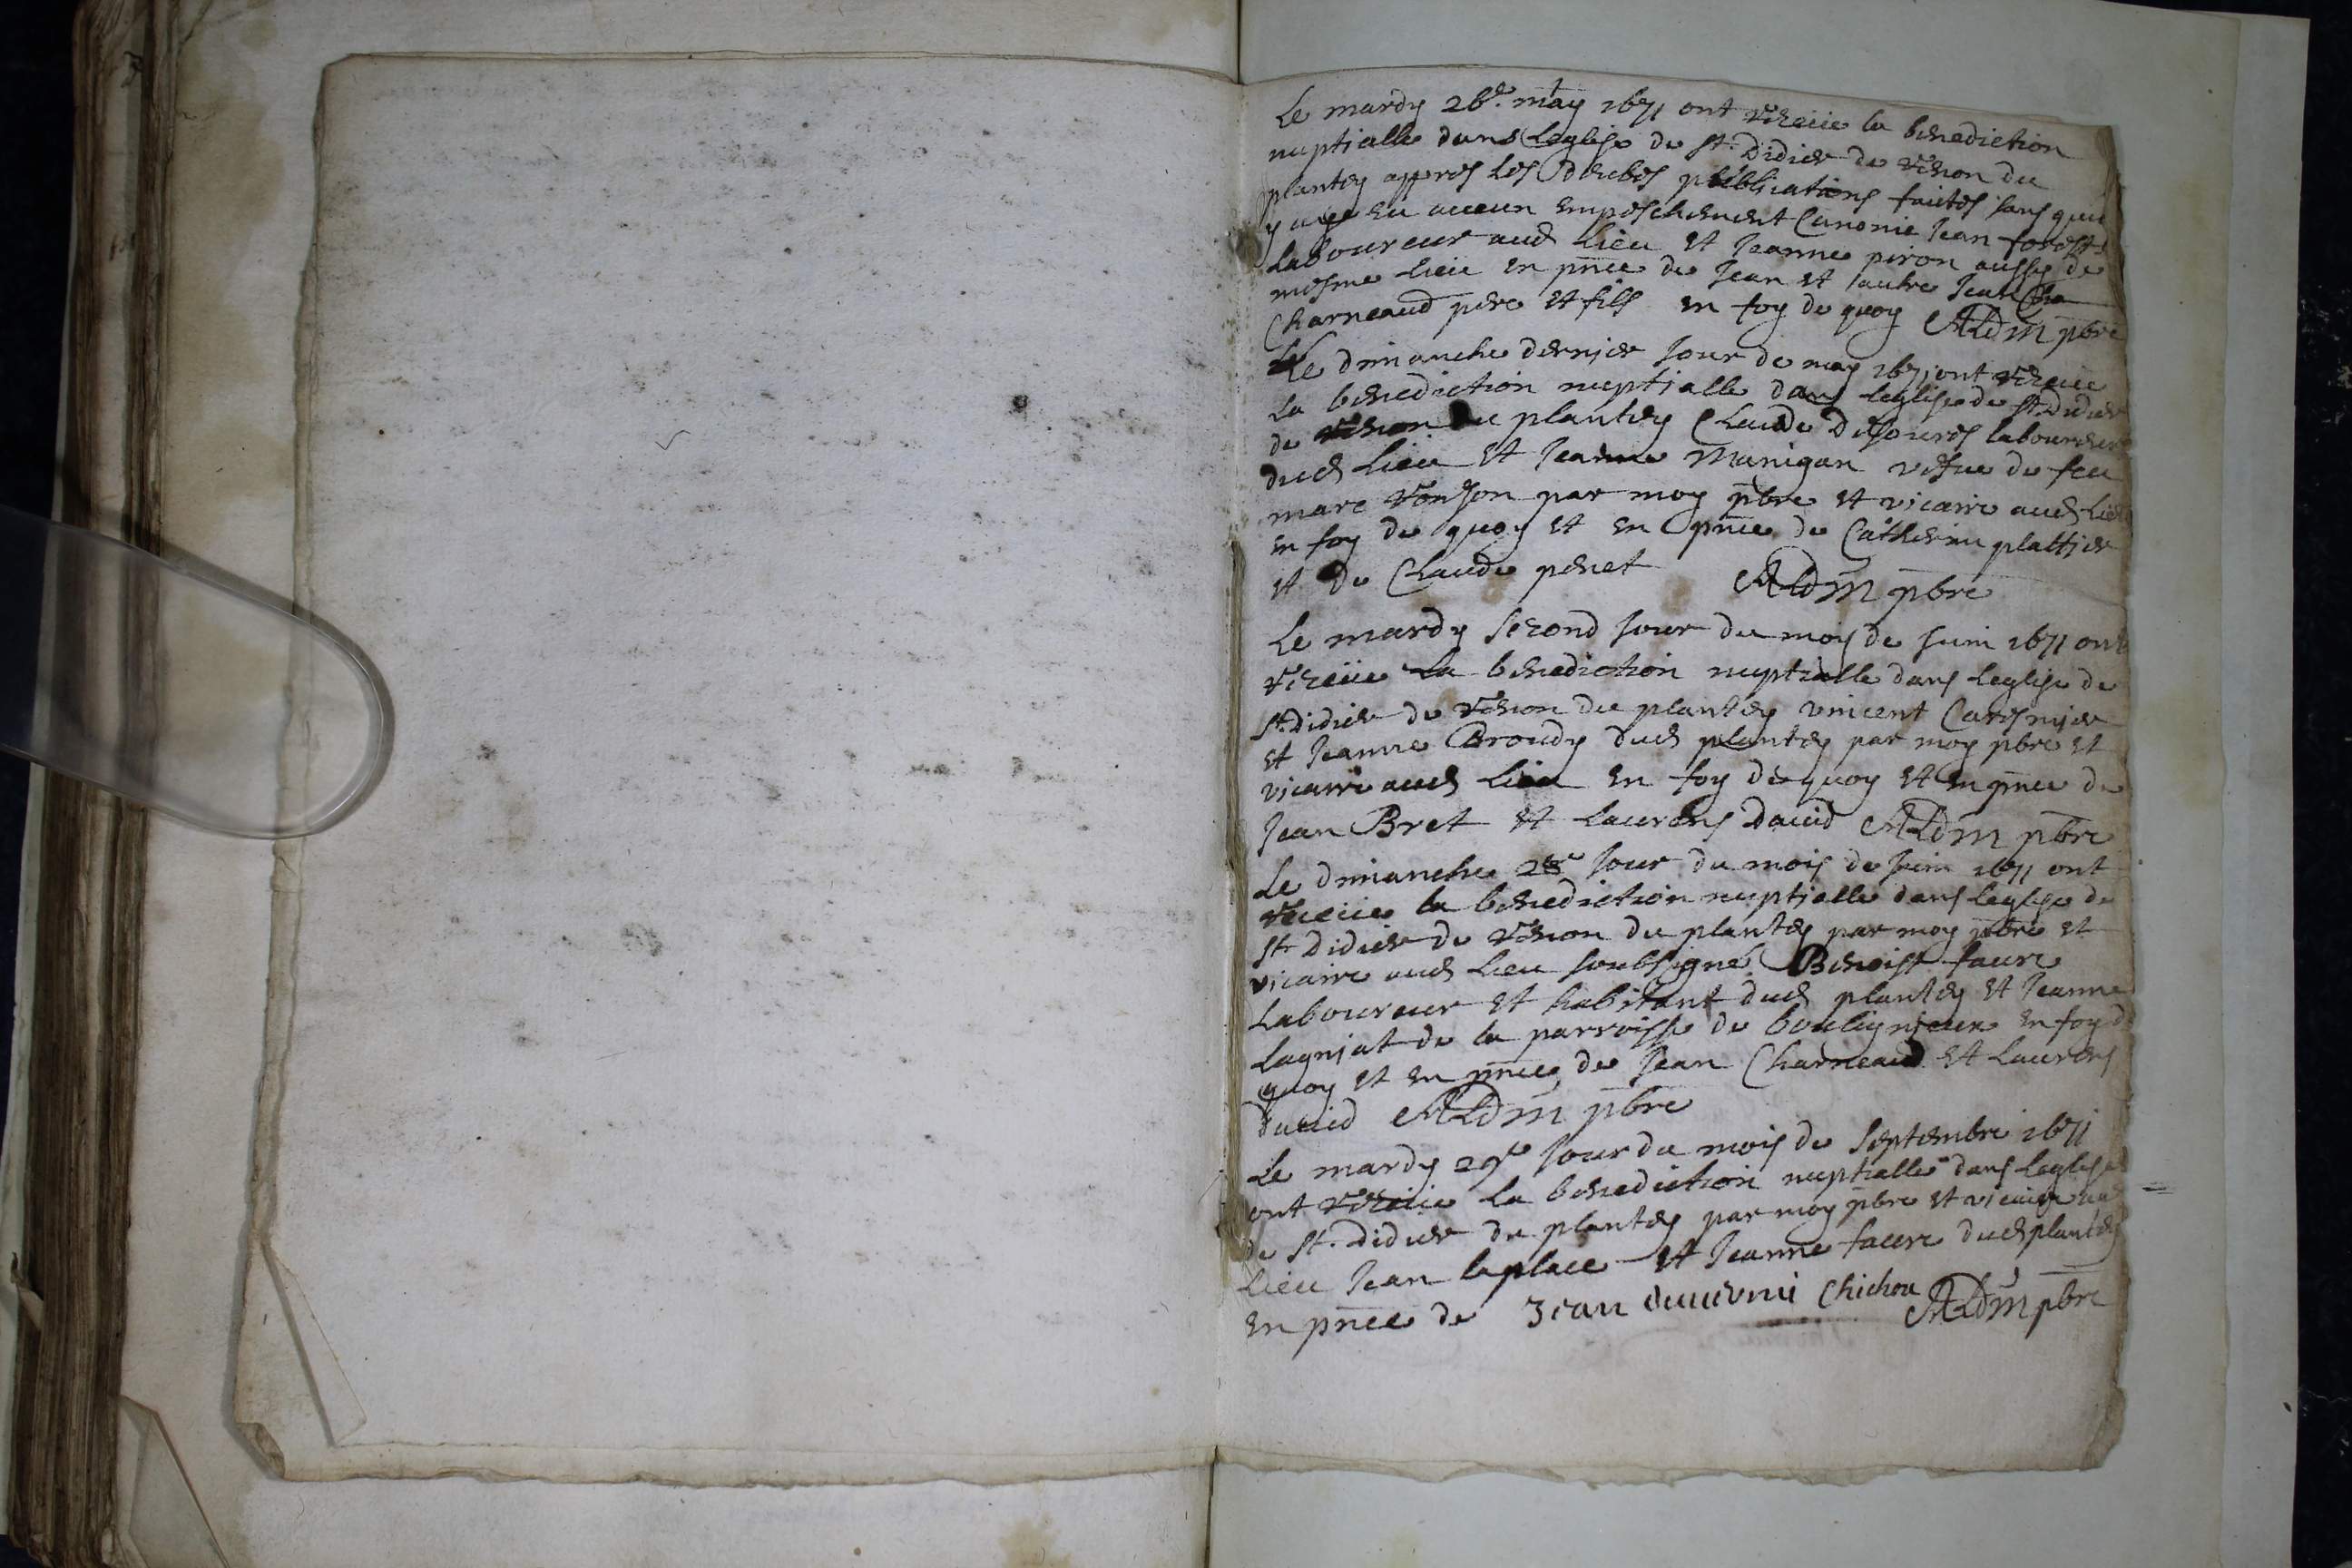 Le mardy 26e. may 1671 ont receue la benediction
nuptialle dans leglise de st. Didier de renon du
plantey appres les deubes publications faictes sans que
y aye eu aucun empeschement Canonic Jean forest
laboureur aud lieu et Jeanne piron aussy de
mesme lieu en pnce de Jean et autre Jean Cha
Charneaud pere et fils en foy de quoy pbre
Le dimanche dernier jour de may 1671 ont receue
la benediction nuptialle dans leglise de st. Didier
de renon du plantey Claude Dufoures laboureur
dud lieu et Jeanne Manigan vefue de feu
marc Vonjon par moy pbre et vicaire aud lieu
en foy de quoy et en pnce de Catherin plattier
et de Claude penet pbre
Le mardy second jour du mois de juin 1671 ont
receue la benediction nuptialle dans leglise de
st. Didier de renon du plantey vincent Caresmier
et Jeanne Broudy dud plantey par moy pbre et
vicaire aud lieu en foy de quoy et en pnce de
Jean Bret et Laurens David pbre
Le dimanche 28e jour du mois de juin 1671 ont
receue la benediction nuptialle dans leglise de
st. Didier de renon du plantey par moy pbre et
vicaire aud lieu soubsigné Benoist faure
Laboureur et habitant dud plantey et Jeanne
Lagniat de la parroisse de bouligneux en foy de
quoy et en pnce de Jean Charneaud et Laurens
David pbre
Le mardy 29e jour du mois de septembre 1671
ont receue la benediction nuptialle dans leglise
de st. Didier du plantey par moy pbre et vicaire aud
Lieu Jean laplace et Jeanne faure dud plantey
en pnce de Jean Chichou pbre